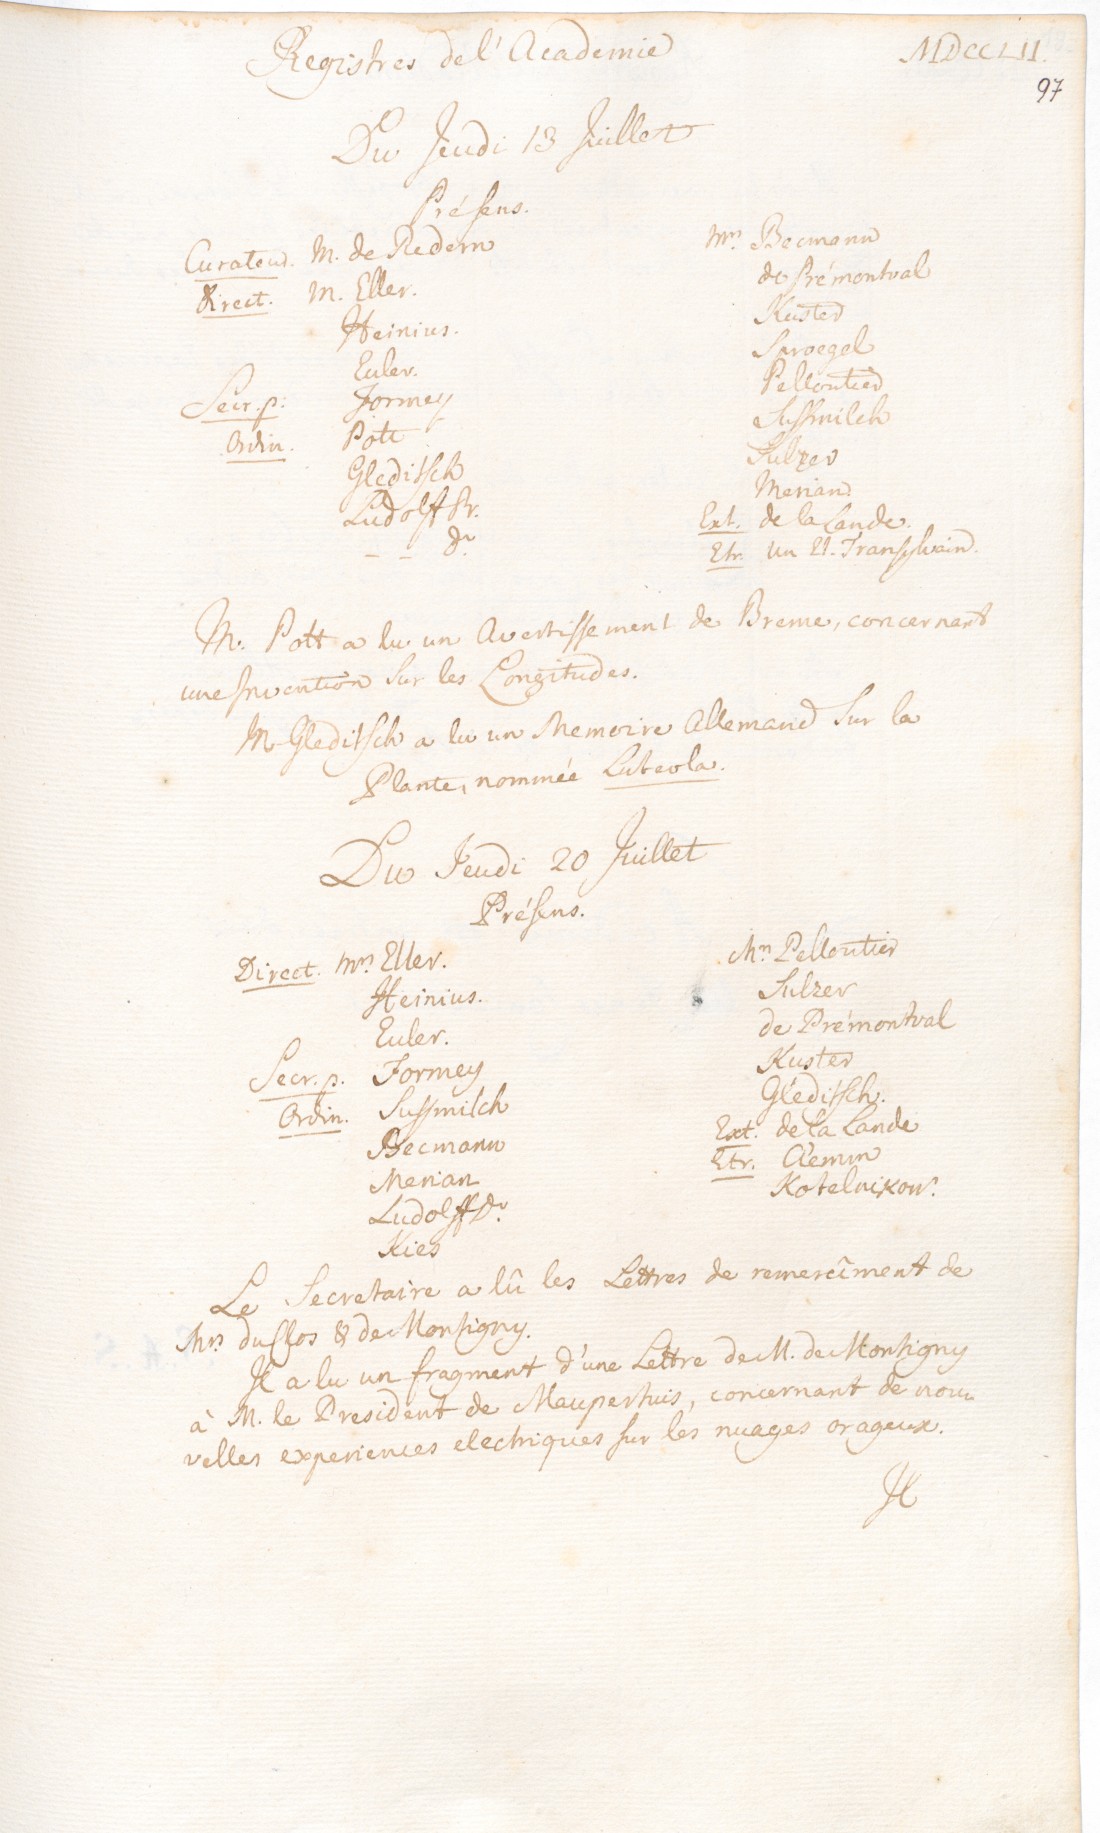 Registres de l'Academie MDCCLII.
97
Du Jeudi 13 Juillet
Présens.
Curateur. M. de Redern
Direct. M. Eller.
Heinius.
Euler.
Secr. p. Formey
Ordin. Pott
Gleditsch
Ludolff Sr.
_ _ dr
Mrs Becmann
de Prémontval
Kuster
Sproegel
Pelloutier
Sussmilch
Sulzer
Merian
Ext. de la Lande.
Etr. un Et. Transylvain.
M. Pott a lu un Avertissement de Breme, concernant
une Invention sur les Longitudes.
M. Gleditsch a lu un Memoire Allemand sur la
Plante, nommée Luteola.
Du Jeudi 20 Juillet
Présens.
Direct. Mrs Eller.
Heinius.
Euler.
Secr. p. Formey
Ordin. Sussmilch
Becmann
Merian
Ludolff dr
Kies
Mrs Pelloutier
Sulzer
de Prémontval
Kuster
Gleditsch.
Ext. de la Lande
Etr. Clemm
Kotelnikow.
Le Secretaire a lû les Lettres de remercîment de
Mrs. du Clos & de Montigny.
Il a lu un fragment d'une Lettre de M. de Montigny
à M. le President de Maupertuis, concernant de nou-
velles experiences electriques sur les nuages orageux.
Il